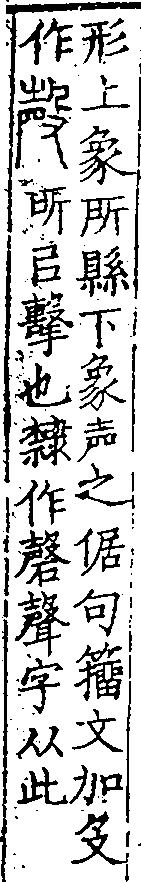 形上象所縣下象声之倨句籀文加殳
作㱿所㠯擊也隸作磬聲字从此